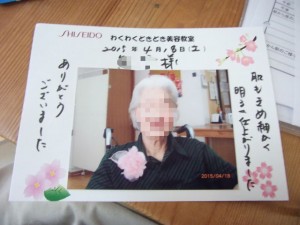 SHISEIDO
わくわくどきどき美容教室
2015年4月18日(土)
様
肌もきめ細かく
明るく仕上がりました
ありがとう
ございました
2015/04/18